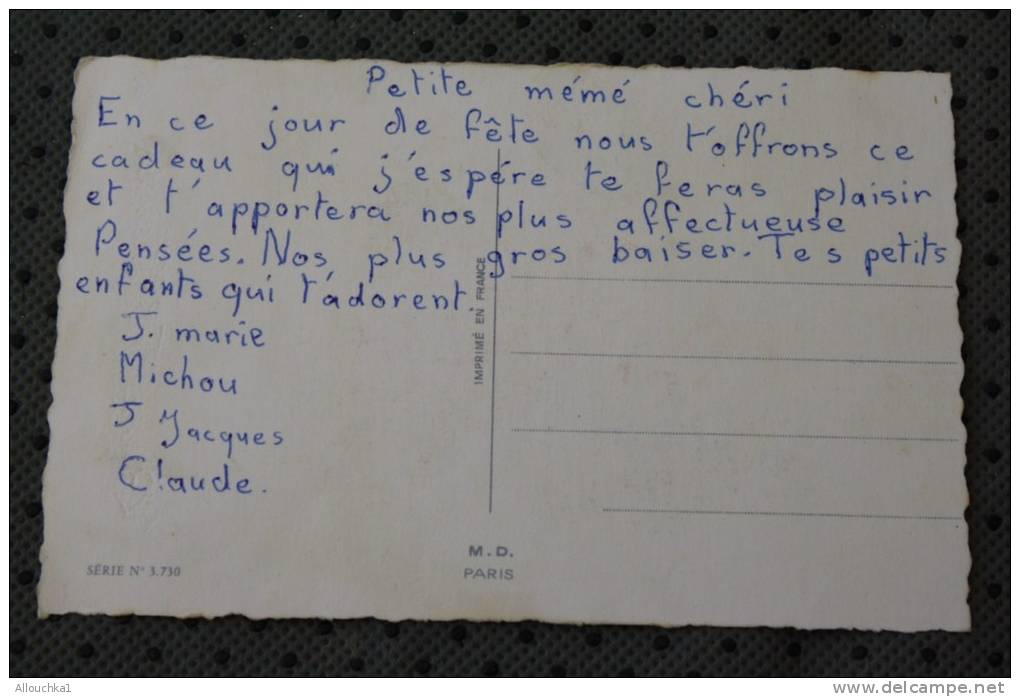 Petite mémé chéri
En ce jour de fête nous t'offrons ce
cadeau qui j'espére te feras plaisir
et t'apportera nos plus affectueuse
Pensées. Nos plus gros baiser. Tes petits
enfants qui t'adorent.
J. marie
Michou
J Jacques
Claude.
IMPRIMÉ EN FRANCE
SÉRIE N° 3.730
M. D.
PARIS
Allouchka1
www.delcampe.net